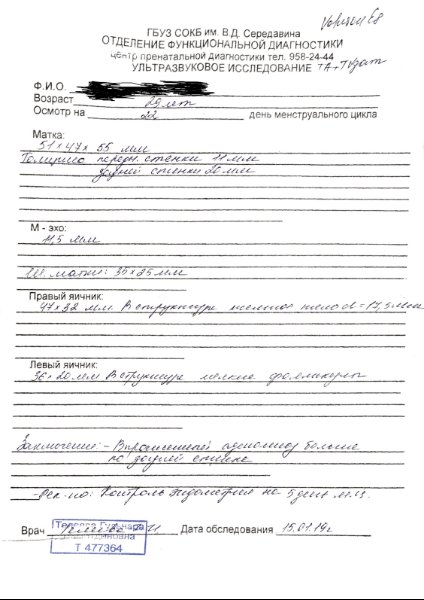 Voluson E8
ГБУЗ СОКБ им. В.Д. Середавина
ОТДЕЛЕНИЕ ФУНКЦИОНАЛЬНОЙ ДИАГНОСТИКИ
центр пренатальной диагностики тел. 958-24-44
УЛЬТРАЗВУКОВОЕ ИССЛЕДОВАНИЕ ТА+ТV
Ф.И.О.
Возраст 29 лет
Осмотр на 22 день менструального цикла
Матка:
51х47х 55 мм
Толщина передн. стенки 11 мм
задней стенки 20 мм
М - эхо:
11,5 мм
Ш. матки: 35х25 мм
Правый яичник:
47х32 мм В структуре желтое тело d = 17,5 мм
Левый яичник:
36×20 мм В структуре мелкие фолликулы
Заключение: - Выраженный аденомиоз больше
по задней стенке
- Рек-но: Контроль эндометрия на 5 день м.ц.
Врач Дата обследования 15.01.19г
Т 477364